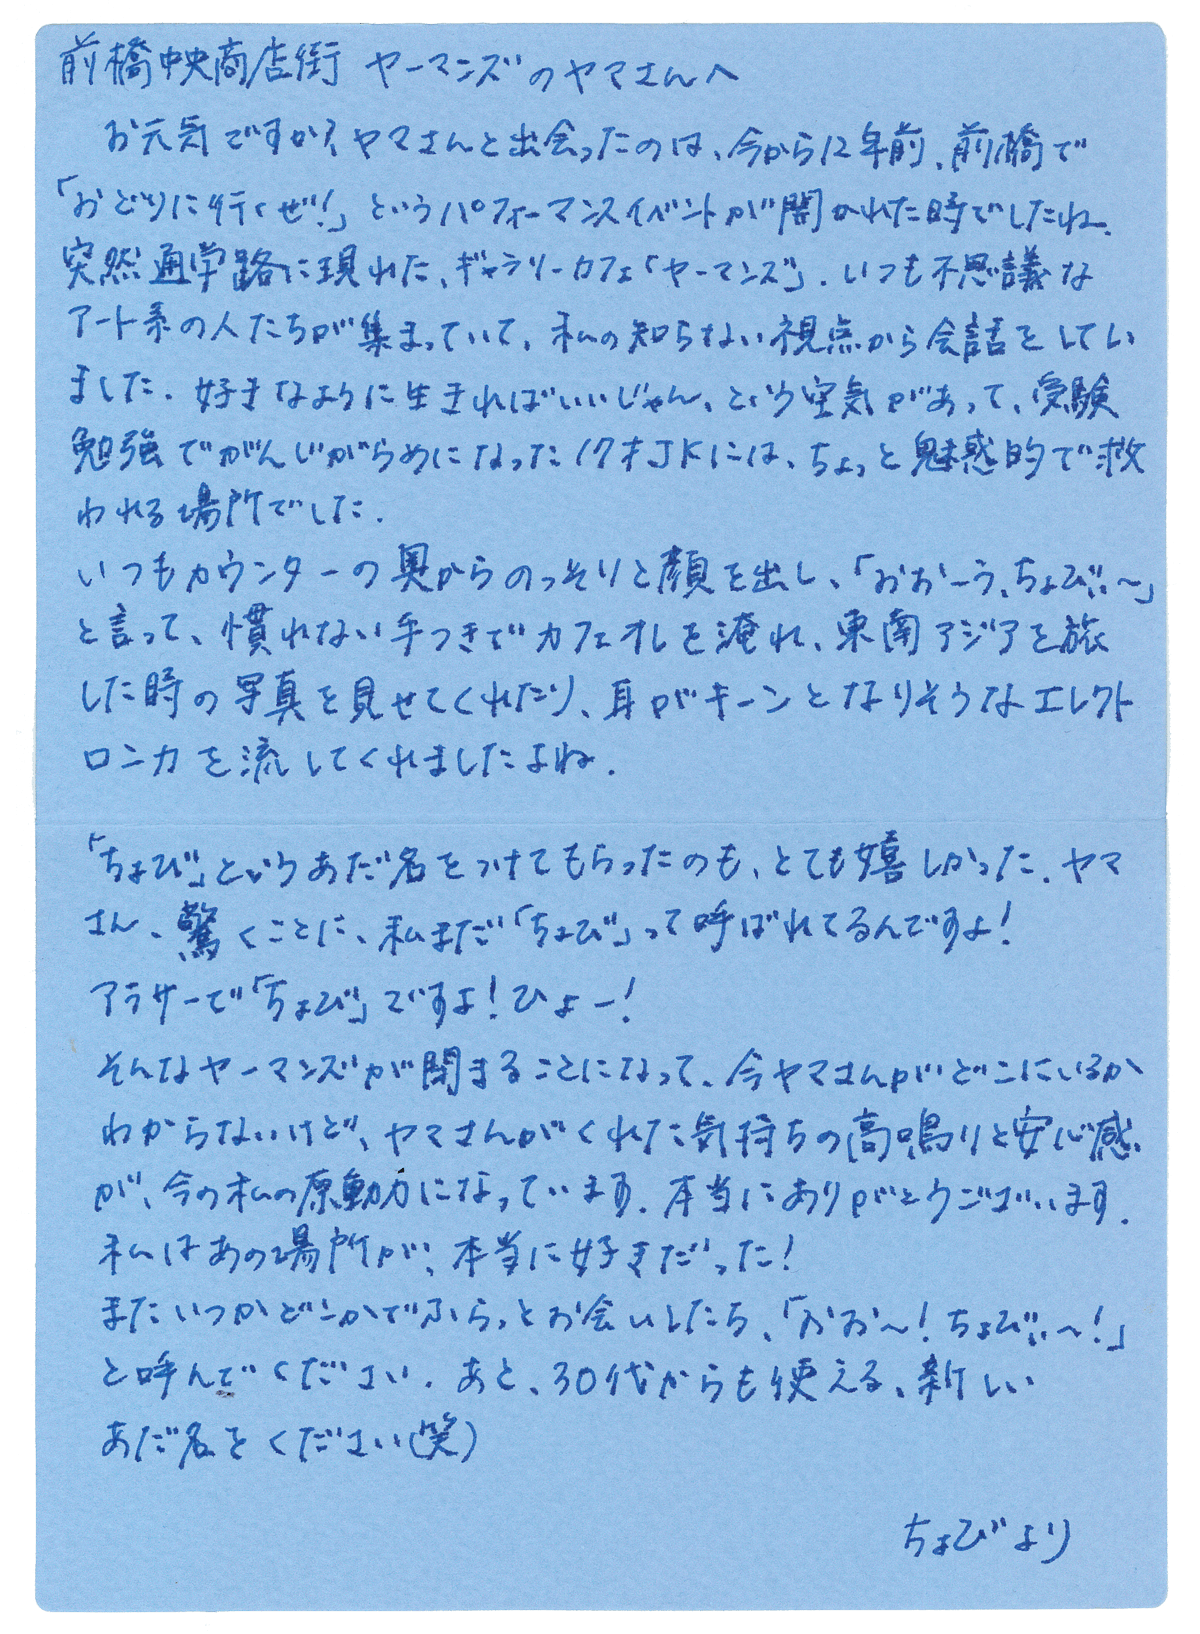 前橋中央商店街 ヤーマンズのヤマさんへ
お元気ですか？ヤマさんと出会ったのは、今から12年前、前橋で
「おどりに行くぜ！」というパフォーマンスイベントが開かれた時でしたね。
突然通学路に現れた、ギャラリーカフェ「ヤーマンズ」。いつも不思議な
アート系の人たちが集まっていて、私の知らない視点から会話をしてい
ました。好きなように生きればいいじゃん、という空気があって、受験
勉強でがんじがらめになった17才JKには、ちょっと魅惑的で救
われる場所でした。
いつもカウンターの奥からのっそりと顔を出し、「おおーう、ちょびぃ〜」
と言って、慣れない手つきでカフェオレを淹れ、東南アジアを旅
した時の写真を見せてくれたり、耳がキーンとなりそうなエレクト
ロニカを流してくれましたよね。
「ちょび」というあだ名をつけてもらったのも、とても嬉しかった。ヤマ
さん、驚くことに、私まだ「ちょび」って呼ばれてるんですよ！
アラサーで「ちょび」ですよ！ひょー！
そんなヤーマンズが閉まることになって、今ヤマさんがどこにいるか
わからないけど、ヤマさんがくれた気持ちの高鳴りと安心感
が、今の私の原動力になっています。本当にありがとうございます。
私はあの場所が、本当に好きだった！
またいつかどこかでふらっとお会いしたら、「おお〜！ちょびぃ〜！」
と呼んでください。あと、30代からも使える、新しい
あだ名をください（笑）
ちょびより